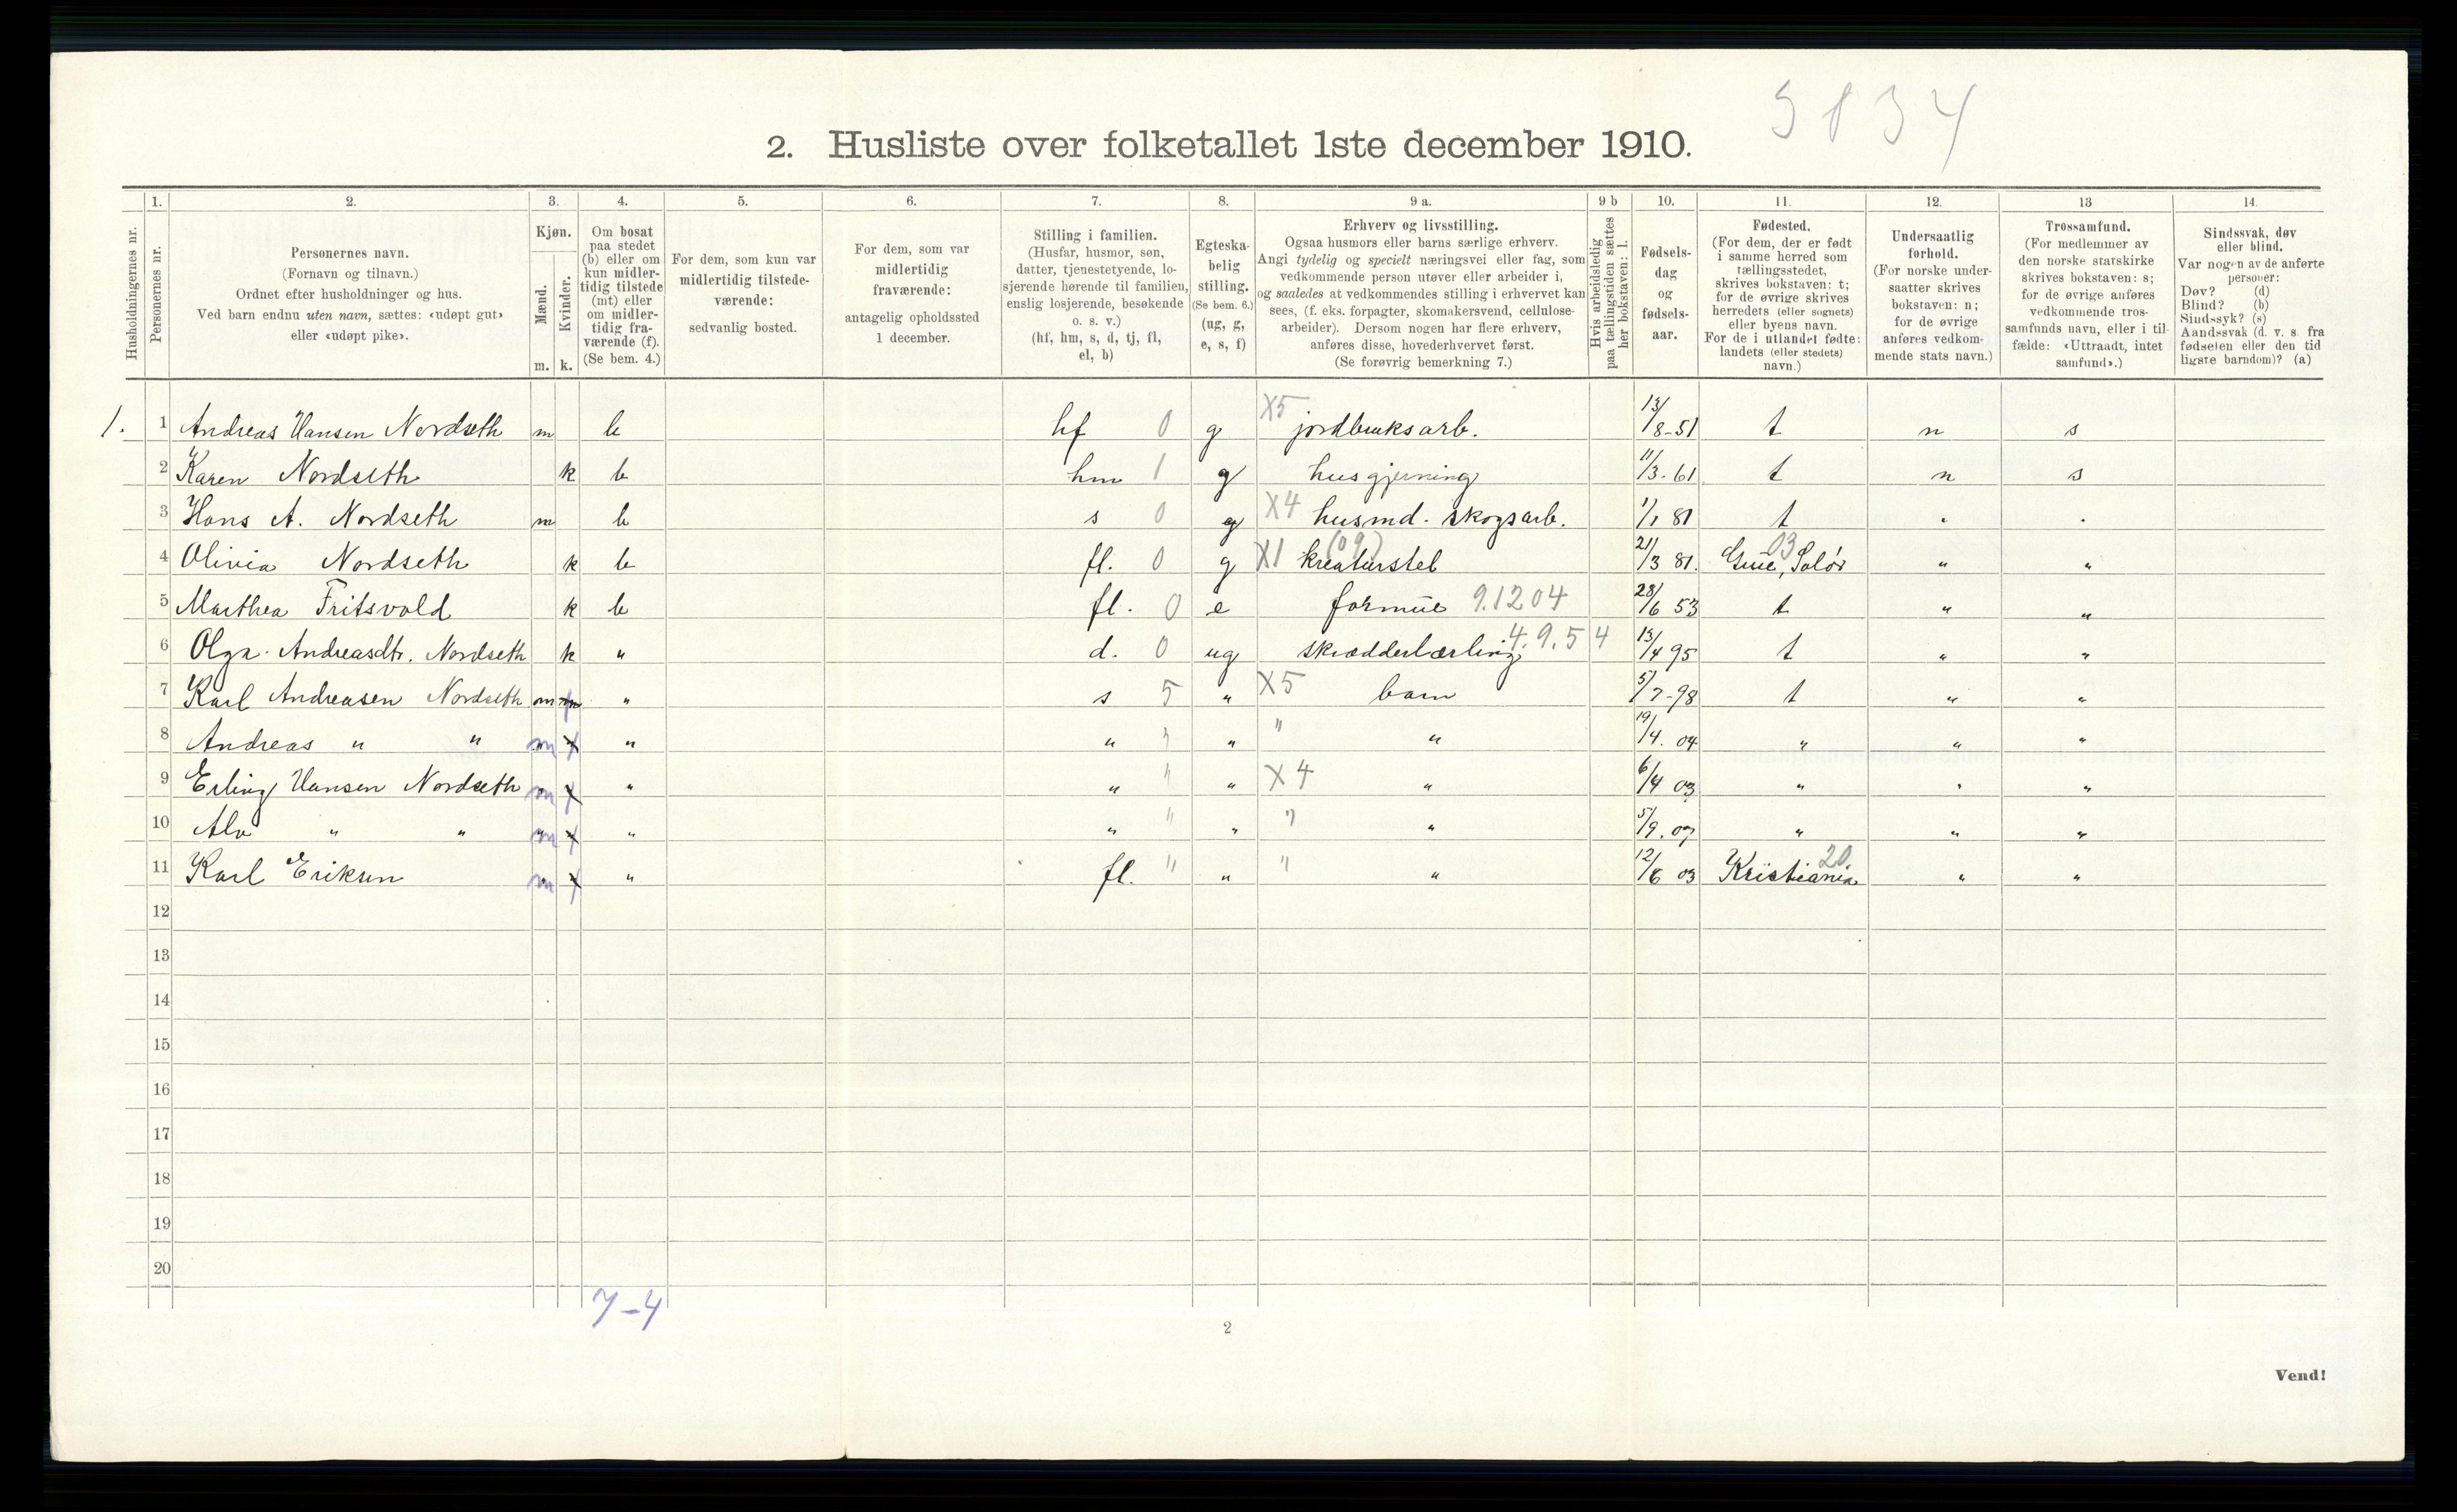 5834
2. Husliste over folketallet 1ste december 1910.
Husholdningernes nr.
1. Personernes nr.
2. Personernes navn.
(Fornavn og tilnavn.)
Ordnet efter husholdninger og hus.
Ved barn endnu uten navn, sættes: «udøpt gut»
eller «udøpt pike».
3. Kjøn.
Mænd. m.
Kvinder. k.
4. Om bosat
paa stedet
(b) eller om
kun midler-
tidig tilstede
(mt) eller
om midler-
tidig fra-
værende (f).
(Se bem. 4.)
5. For dem, som kun var
midlertidig tilstede-
værende:
sedvanlig bosted.
6. For dem, som var
midlertidig
fraværende:
antagelig opholdssted
1 december.
7. Stilling i familien.
(Husfar, husmor, søn,
datter, tjenestetyende, lo-
sjerende hørende til familien,
enslig losjerende, besøkende
o. s. v.)
(hf, hm, s, d, tj, fl,
el, b)
8. Egteska-
belig
stilling.
(Se bem. 6.)
(ug, g,
e, s, f)
9 a. Erhverv og livsstilling.
Ogsaa husmors eller barns særlige erhverv.
Angi tydelig og specielt næringsvei eller fag, som
vedkommende person utøver eller arbeider i,
og saaledes at vedkommendes stilling i erhvervet kan
sees, (f. eks. forpagter, skomakersvend, cellulose-
arbeider). Dersom nogen har flere erhverv,
anføres disse, hovederhvervet først.
(Se forøvrig bemerkning 7.)
9 b Hvis arbeidsledig
paa tællingstiden sættes
her bokstaven: l.
10. Fødsels-
dag
og
fødsels-
aar.
11. Fødested.
(For dem, der er født
i samme herred som
tællingsstedet,
skrives bokstaven: t;
for de øvrige skrives
herredets (eller sognets)
eller byens navn.
For de i utlandet fødte:
landets (eller stedets)
navn.)
12. Undersaatlig
forhold.
(For norske under-
saatter skrives
bokstaven: n;
for de øvrige
anføres vedkom-
mende stats navn.)
13 Trossamfund.
(For medlemmer av
den norske statskirke
skrives bokstaven: s;
for de øvrige anføres
vedkommende tros-
samfunds navn, eller i til-
fælde: «Uttraadt, intet
samfund».)
14. Sindssvak, døv
eller blind.
Var nogen av de anførte
personer:
Døv? (d)
Blind? (b)
Sindssyk? (s)
Aandssvak (d. v. s. fra
fødselen eller den tid
ligste barndom)? (a)
1. 1 Andreas Hansen Nordseth m b hf 0 g X5 jordbruksarb. 13/8-51 t n s
2 Karen Nordseth k b hm 1 g husgjerning 11/3-61 t n s
3 Hans A. Nordseth m b s 0 g X4 husmd. skogsarb. 1/1 81 t " "
4 Olivia Nordseth k b fl. 0 g X1 kreaturstel (09) 21/3 81. Grue, Solør 03 " "
5 Marthea Fritsvold k b fl. 0 e formue 9.1204 28/6 53 t " "
6 Olga Andreasdtr. Nordseth k " d. 0 ug skrædderlærling 4.9.54 13/4 95 t " "
7 Karl Andreasen Nordseth m " s 5 " X5 barn 5/7-98 t " "
8 Andreas " " m " " " " " " 19/4. 04 " " "
9 Erling Hansen Nordseth m " " " " X4 " 6/4 03 " " "
10 Alv " " m " " " " " " 5/9. 07 " " "
11 Karl Eriksen m " fl. " " " " 12/6 03 Kristiania 20 " "
12
13
14
15
16
17
18
19
20
7-4
2
Vend!